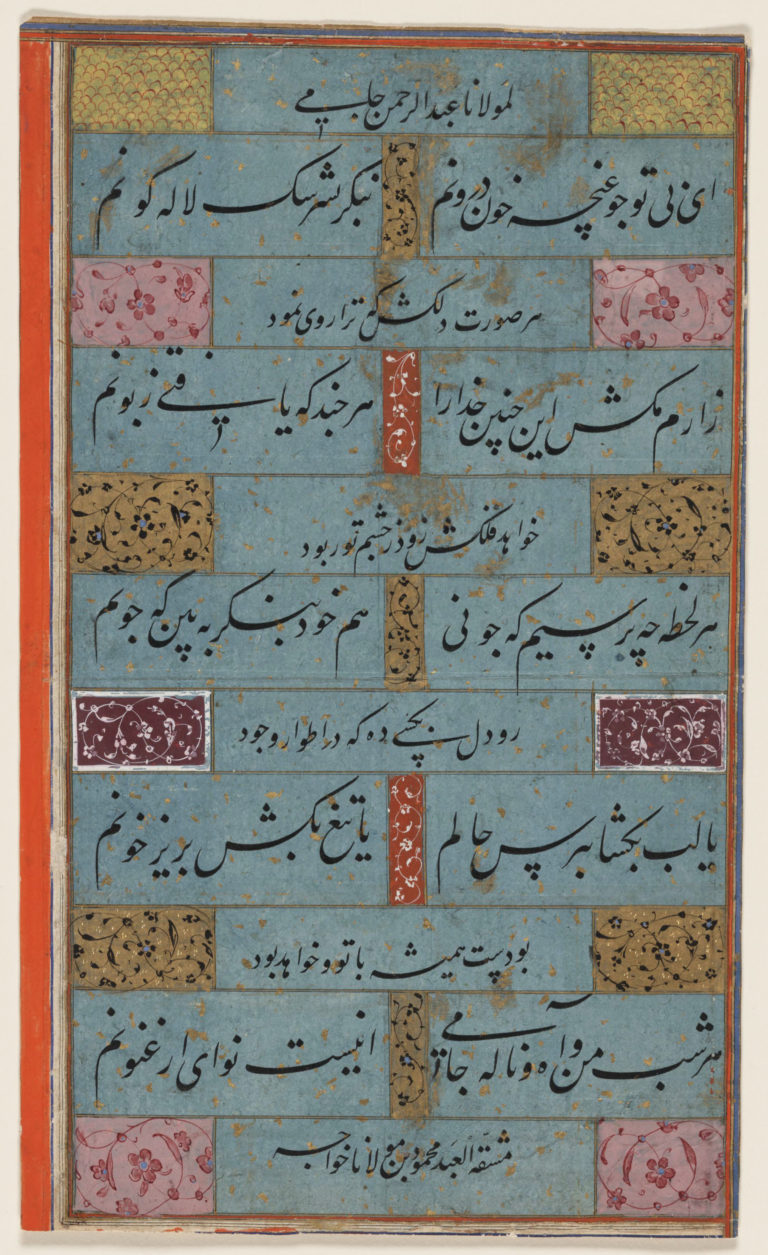 لمولانا عبدالرحمن جامی
ای بی تو چو غنچه خون درونم بنگر بسرشک لاله گونم
هر صورت دلکش که ترا روی نمود
زارم مکش این چنین خدا را هر چند که یافتی زبونم
خواهد فلکش زود ز چشم تو ربود
هر لحظه چه پرسیم که چونی هم خود بنگر ببین که چونم
رو دل بکسی ده که در اطوار وجود
یا لب بگشا بپرس حالم یا تیغ بکش بریز خونم
بودست همیشه با تو و خواهد بود
هر شب من و آه و ناله جامی اینست نوای ارغنونم
مشقه العبد محمود بن مولانا خواجه